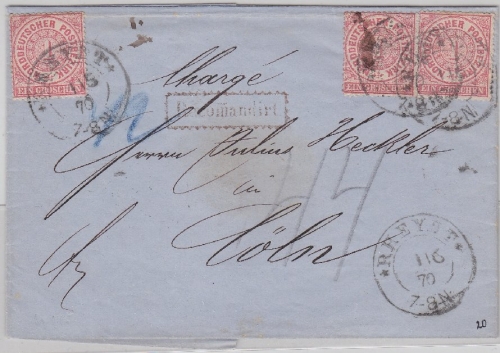 NORDDEUTSCHER POSTBEZIRK
EIN GROSCHEN
NORDDEUTSCHER POSTBEZIRK
EIN GROSCHEN
NORDDEUTSCHER POSTBEZIRK
EIN GROSCHEN
RHEYDT
11 6
70
7-8 N.
Chargé
Recomandirt
Herrn Julius Heckler
in
Cöln
RHEYDT
11 6
70
7-8 N.
20